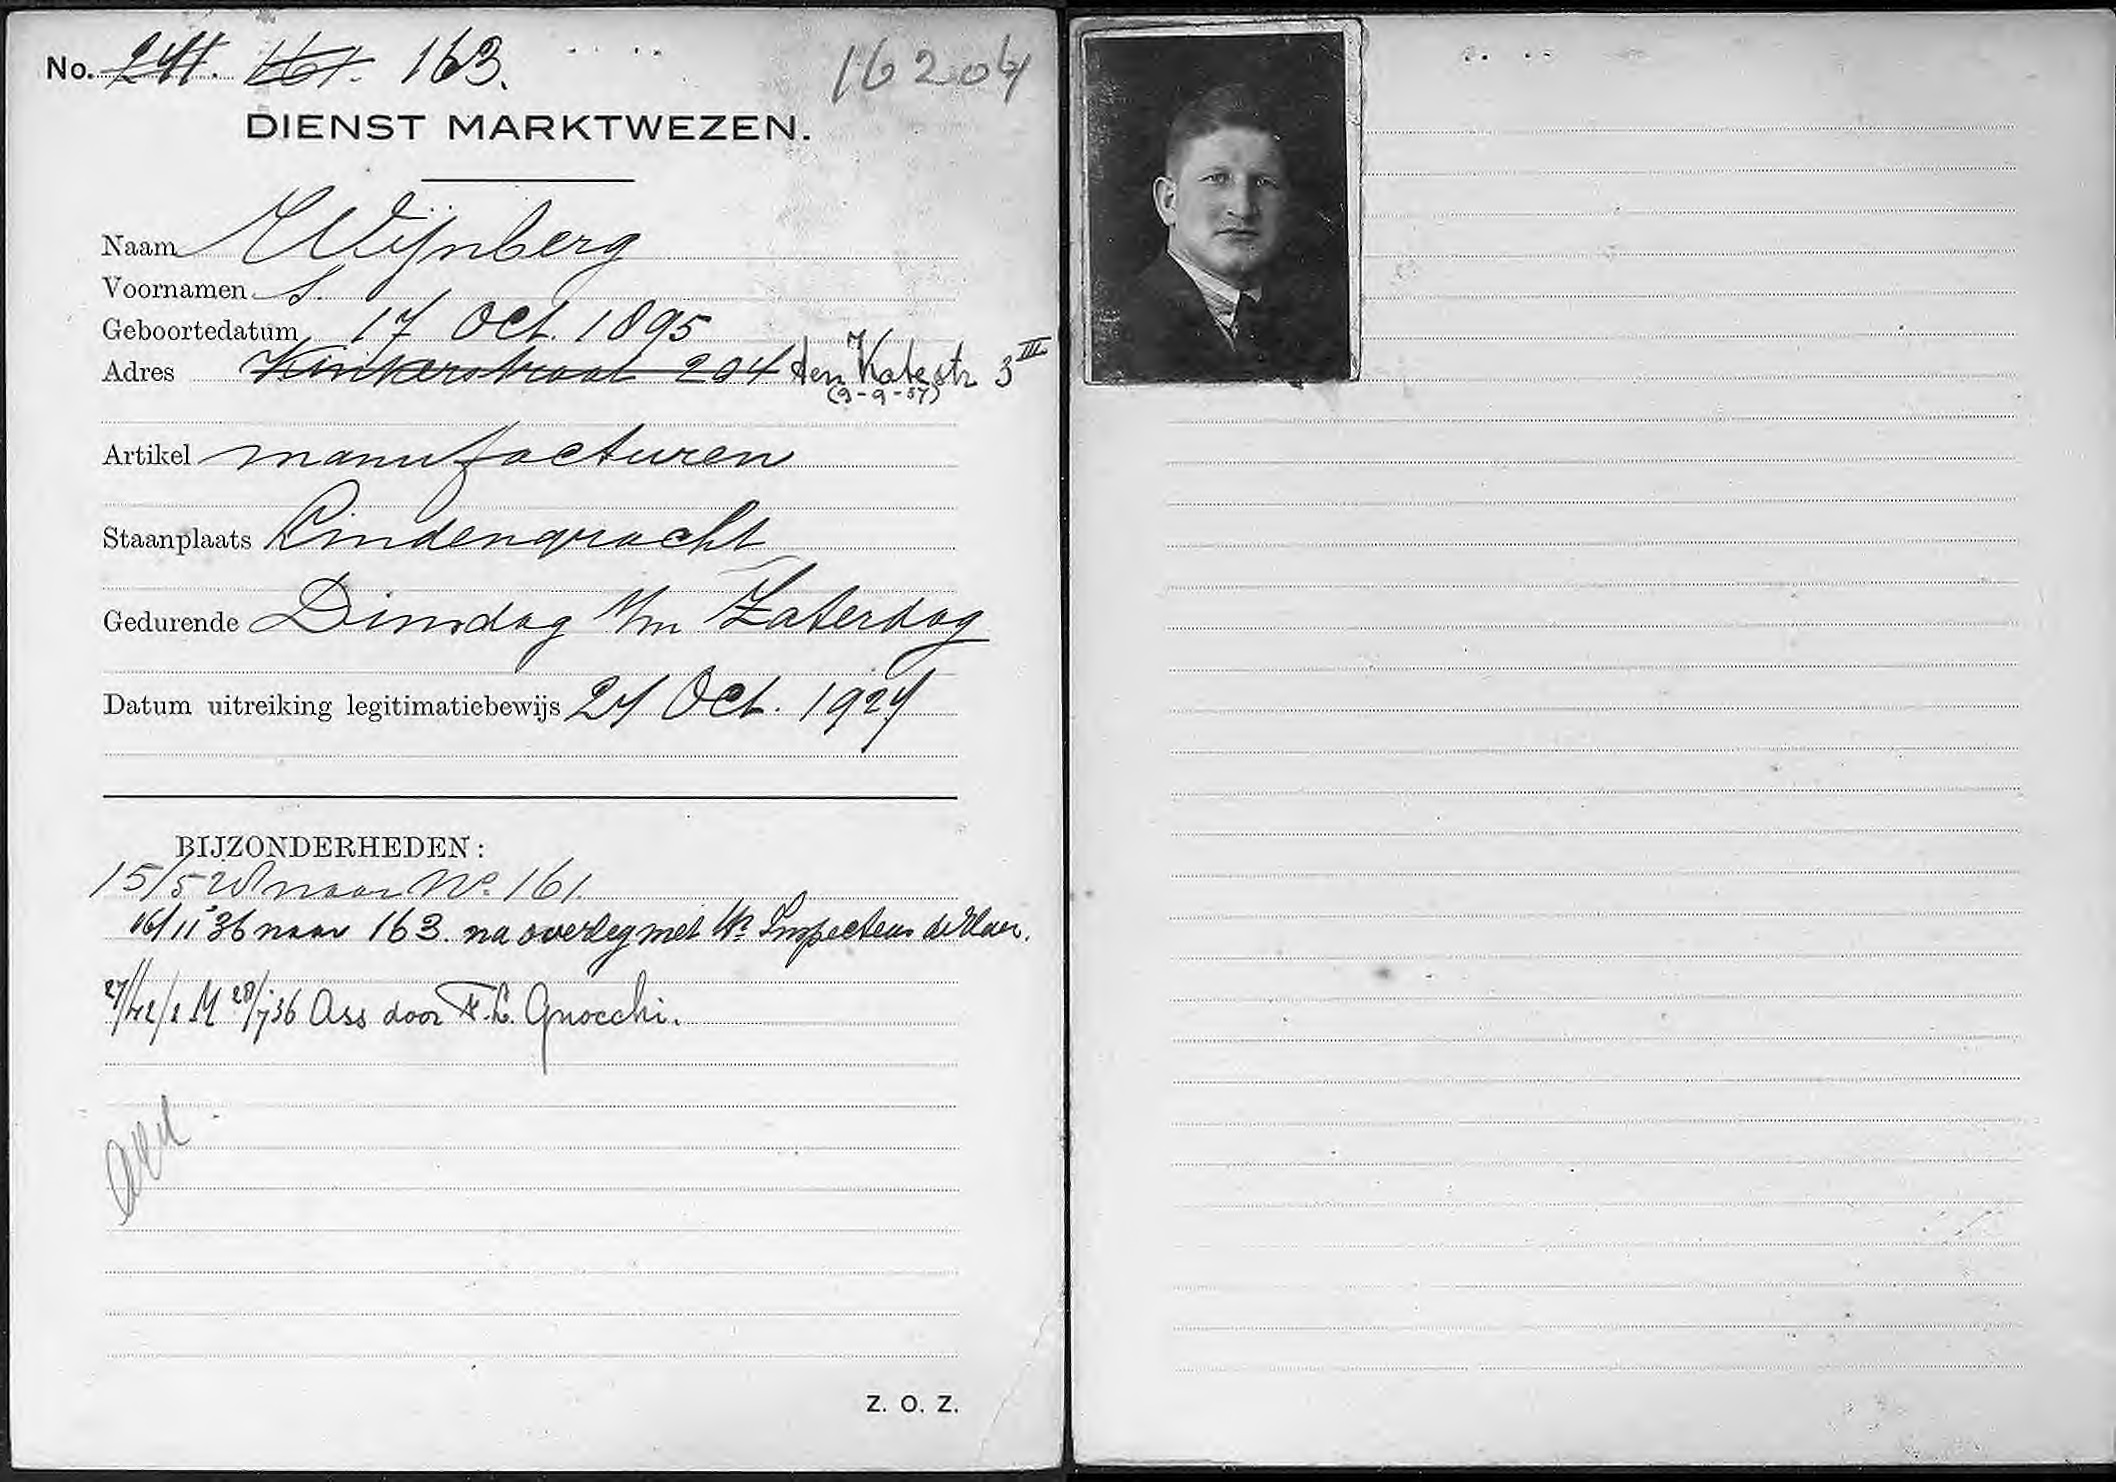 No. 241. 161. 163. 16204
DIENST MARKTWEZEN.
Naam Wijnberg
Voornamen S.
Geboortedatum 17 Oct. 1895
Adres Kinkerstraat 204 ten Katestr 3 III
(9-9-37)
Artikel manufacturen
Staanplaats Lindengracht
Gedurende Dinsdag t/m Zaterdag
Datum uitreiking legitimatiebewijs 24 Oct. 1924
BIJZONDERHEDEN:
15/5 naar No. 161.
16/11 '36 naar 163. na overleg met Inspecteur
28/7 '36 Ass door F. L. Gnocchi.
Z. O. Z.